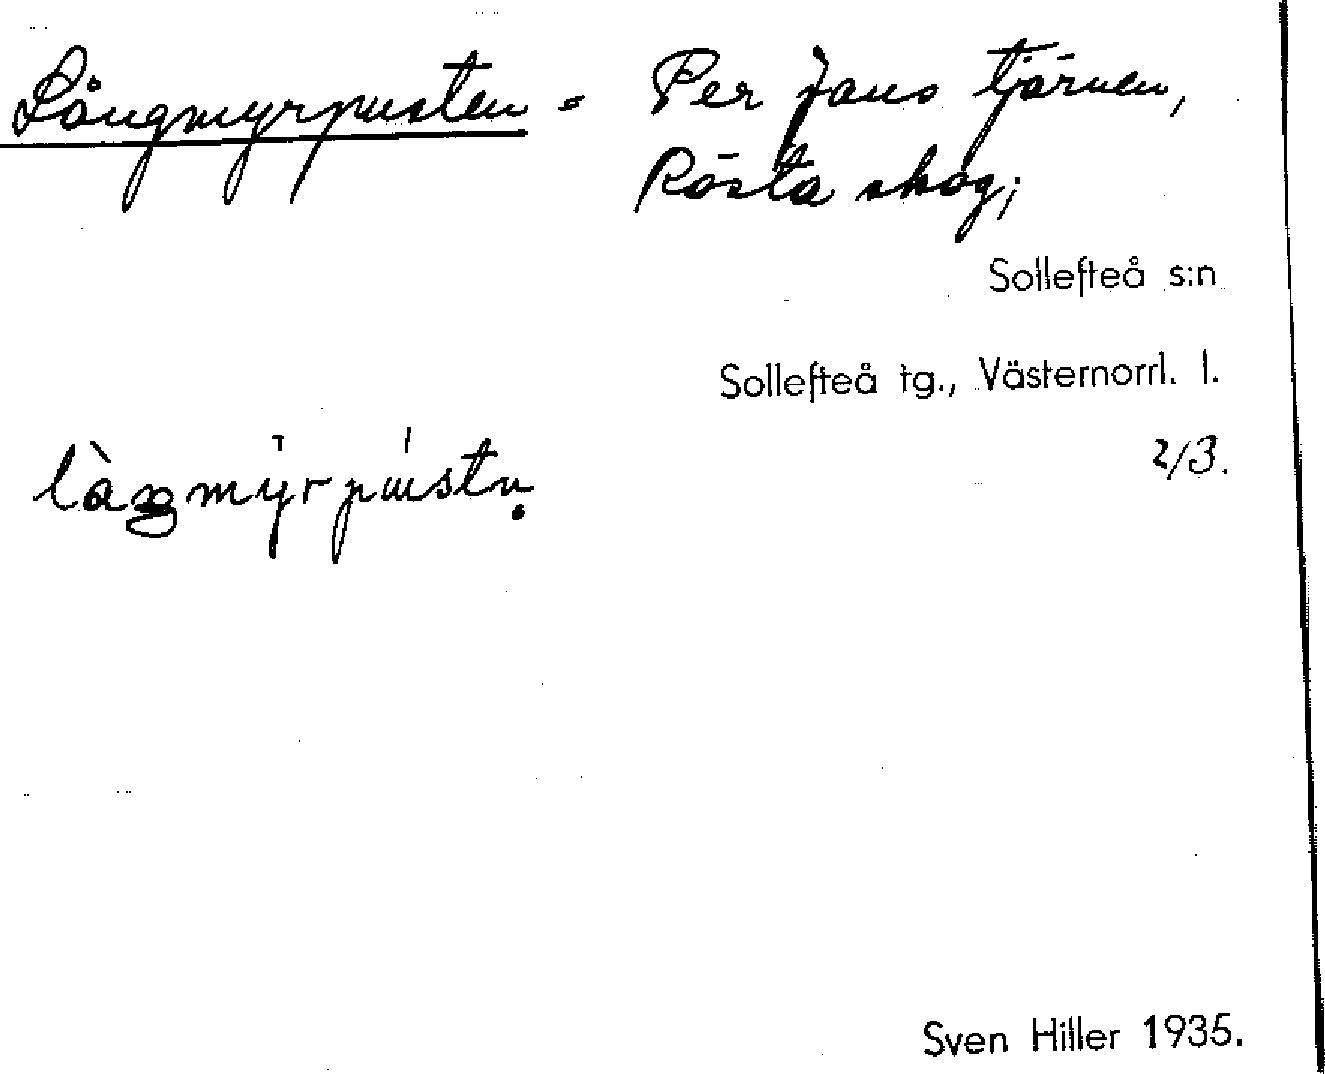 Långmyrpusten = Per Jans tjärnen,
Rösta skog;
Sollefteå s:n
Sollefteå tg., Västernorrl. l.
2/3.
Sven Hiller 1935.